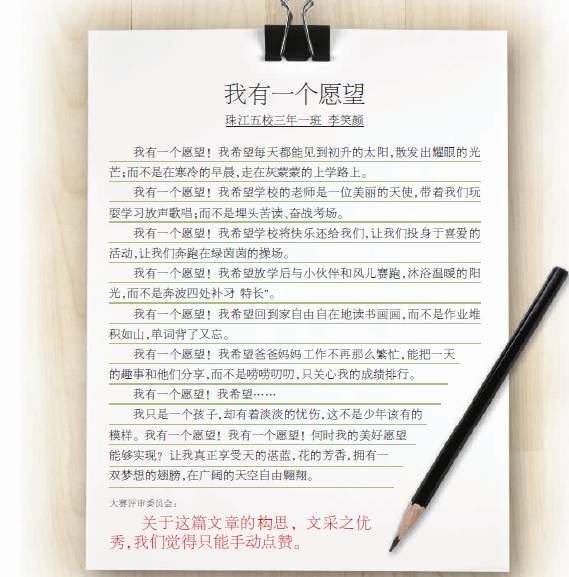 我有一个愿望
珠江五校三年一班 李笑颜
我有一个愿望！我希望每天都能见到初升的太阳,散发出耀眼的光
芒;而不是在寒冷的早晨,走在灰蒙蒙的上学路上。
我有一个愿望！我希望学校的老师是一位美丽的天使,带着我们玩
耍学习放声歌唱;而不是埋头苦读、奋战考场。
我有一个愿望！我希望学校将快乐还给我们,让我们投身于喜爱的
活动,让我们奔跑在绿茵茵的操场。
我有一个愿望！我希望放学后与小伙伴和风儿赛跑,沐浴温暖的阳
光,而不是奔波四处补习“特长”。
我有一个愿望！我希望回到家自由自在地读书画画,而不是作业堆
积如山,单词背了又忘。
我有一个愿望！我希望爸爸妈妈工作不再那么繁忙,能把一天
的趣事和他们分享,而不是唠唠叨叨,只关心我的成绩排行。
我有一个愿望！我希望……
我只是一个孩子,却有着淡淡的忧伤,这不是少年该有的
模样。我有一个愿望！我有一个愿望！何时我的美好愿望
能够实现？让我真正享受天的湛蓝,花的芳香,拥有一
双梦想的翅膀,在广阔的天空自由翱翔。
大赛评审委员会：
关于这篇文章的构思，文采之优
秀,我们觉得只能手动点赞。